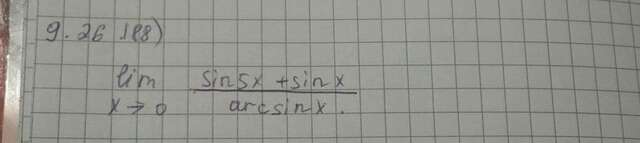 9.26 1(8)
lim sin5x + sinx
x → 0 arcsinx.